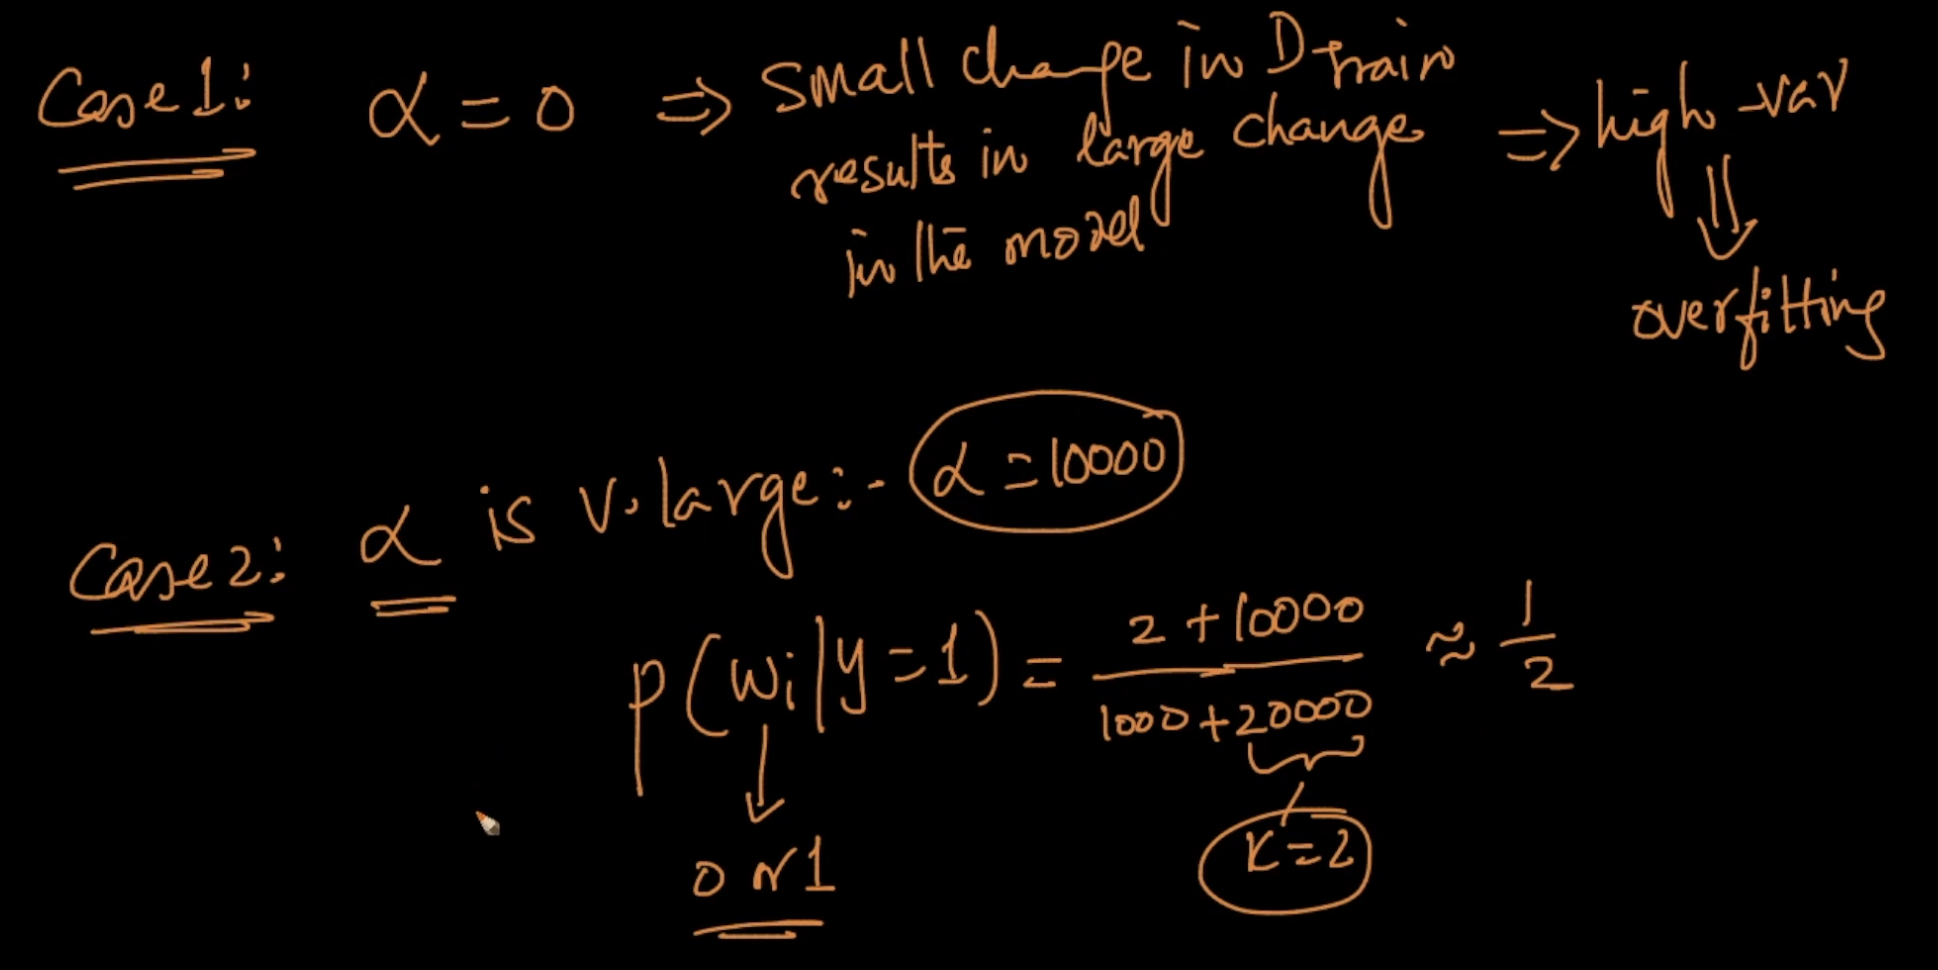 Case 1: α = 0 ⇒ small change in D train ⇒ high-var
results in large change
in the model
⇓
overfitting
Case 2: α is v. large:- α = 10000
P(wi|y=1) = 2 + 10000 / 1000 + 20000 ≈ 1/2
↓
0 or 1
K=2